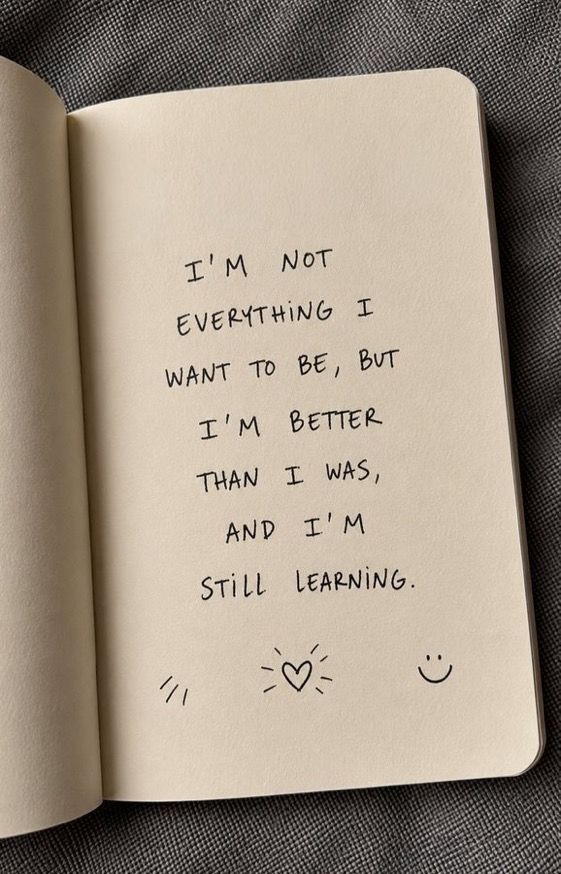 I'M NOT
EVERYTHING I
WANT TO BE, BUT
I'M BETTER
THAN I WAS,
AND I'M
STILL LEARNING.